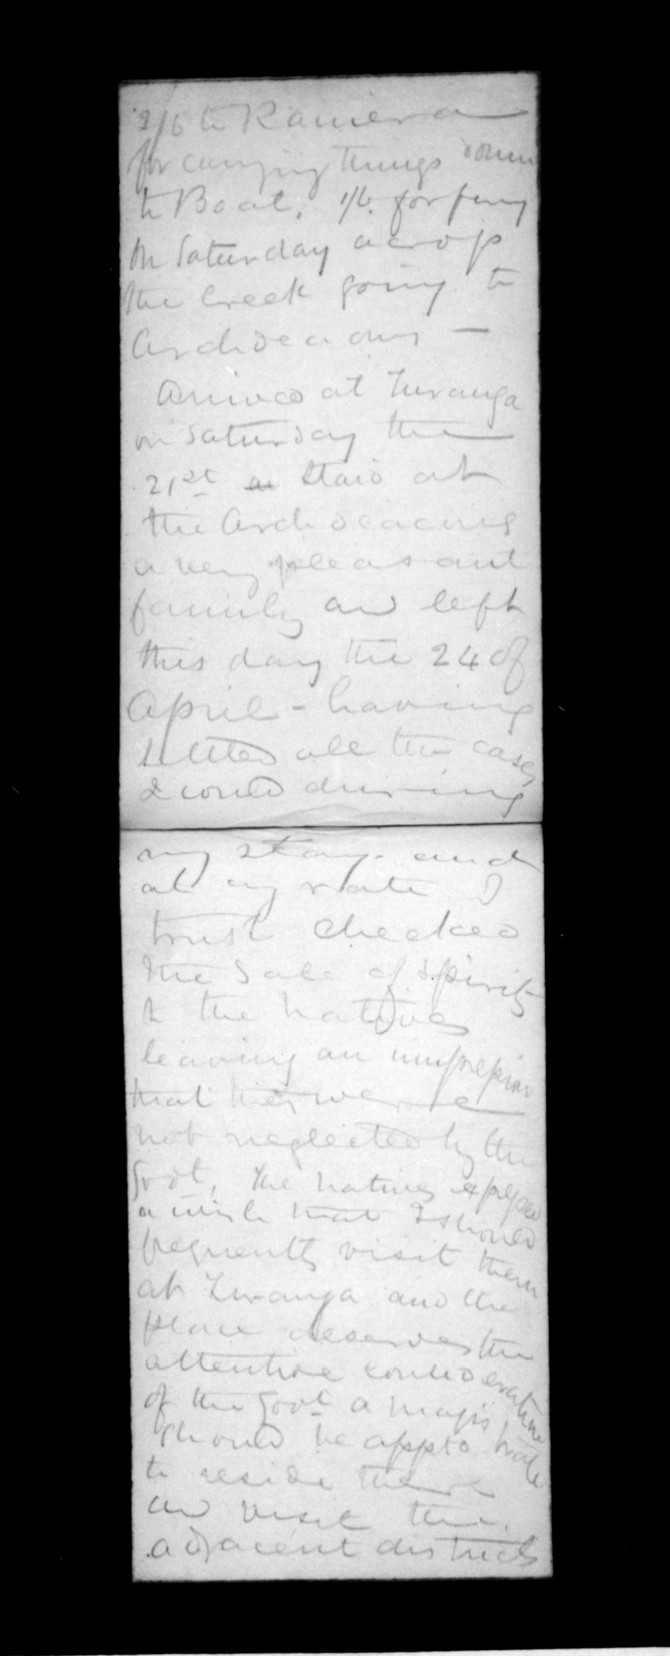 2/6 to Raniera
for carrying things down
to Boat, 1/6 for ferry
on Saturday across
the Creek going to
Archdeacons —
Arrived at Turanga
on Saturday the
21st Staid at
the Archdeacons
a very pleasant
family and left
this day the 24 of
April - having
settled all the cases
I could during
my stay. and
at any rate I
trust checked
the Sale of Spirits
to the Natives
leaving an impression
that they were
not neglected by the
Govt, The natives expressed
a wish that I should
frequently visit them
at Turanga and the
place deserves the
attentive consideration
of the Govt a magistrate
should be appt'd
to reside there
and visit the
adjacent districts